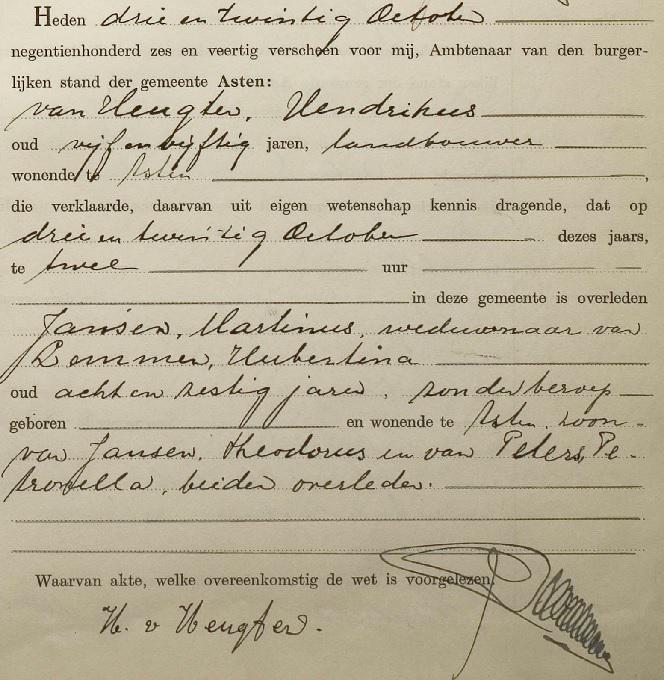 Heden drie en twintig October
negentienhonderd zes en veertig verscheen voor mij, Ambtenaar van den burger-
lijken stand der gemeente Asten:
van Heugten, Hendrikus
oud vijf en vijftig jaren, landbouwer
wonende te Asten,
die verklaarde, daarvan uit eigen wetenschap kennis dragende, dat op
drie en twintig October dezes jaars,
te twee uur
in deze gemeente is overleden
Jansen, Martinus, weduwnaar van
Lemmen, Hubertina
oud acht en zestig jaren, zonder beroep
geboren en wonende te Asten, zoon
van Jansen, Theodorus en van Peters, Pe-
tronella, beiden overleden.
Waarvan akte, welke overeenkomstig de wet is voorgelezen.
H. v Heugten.